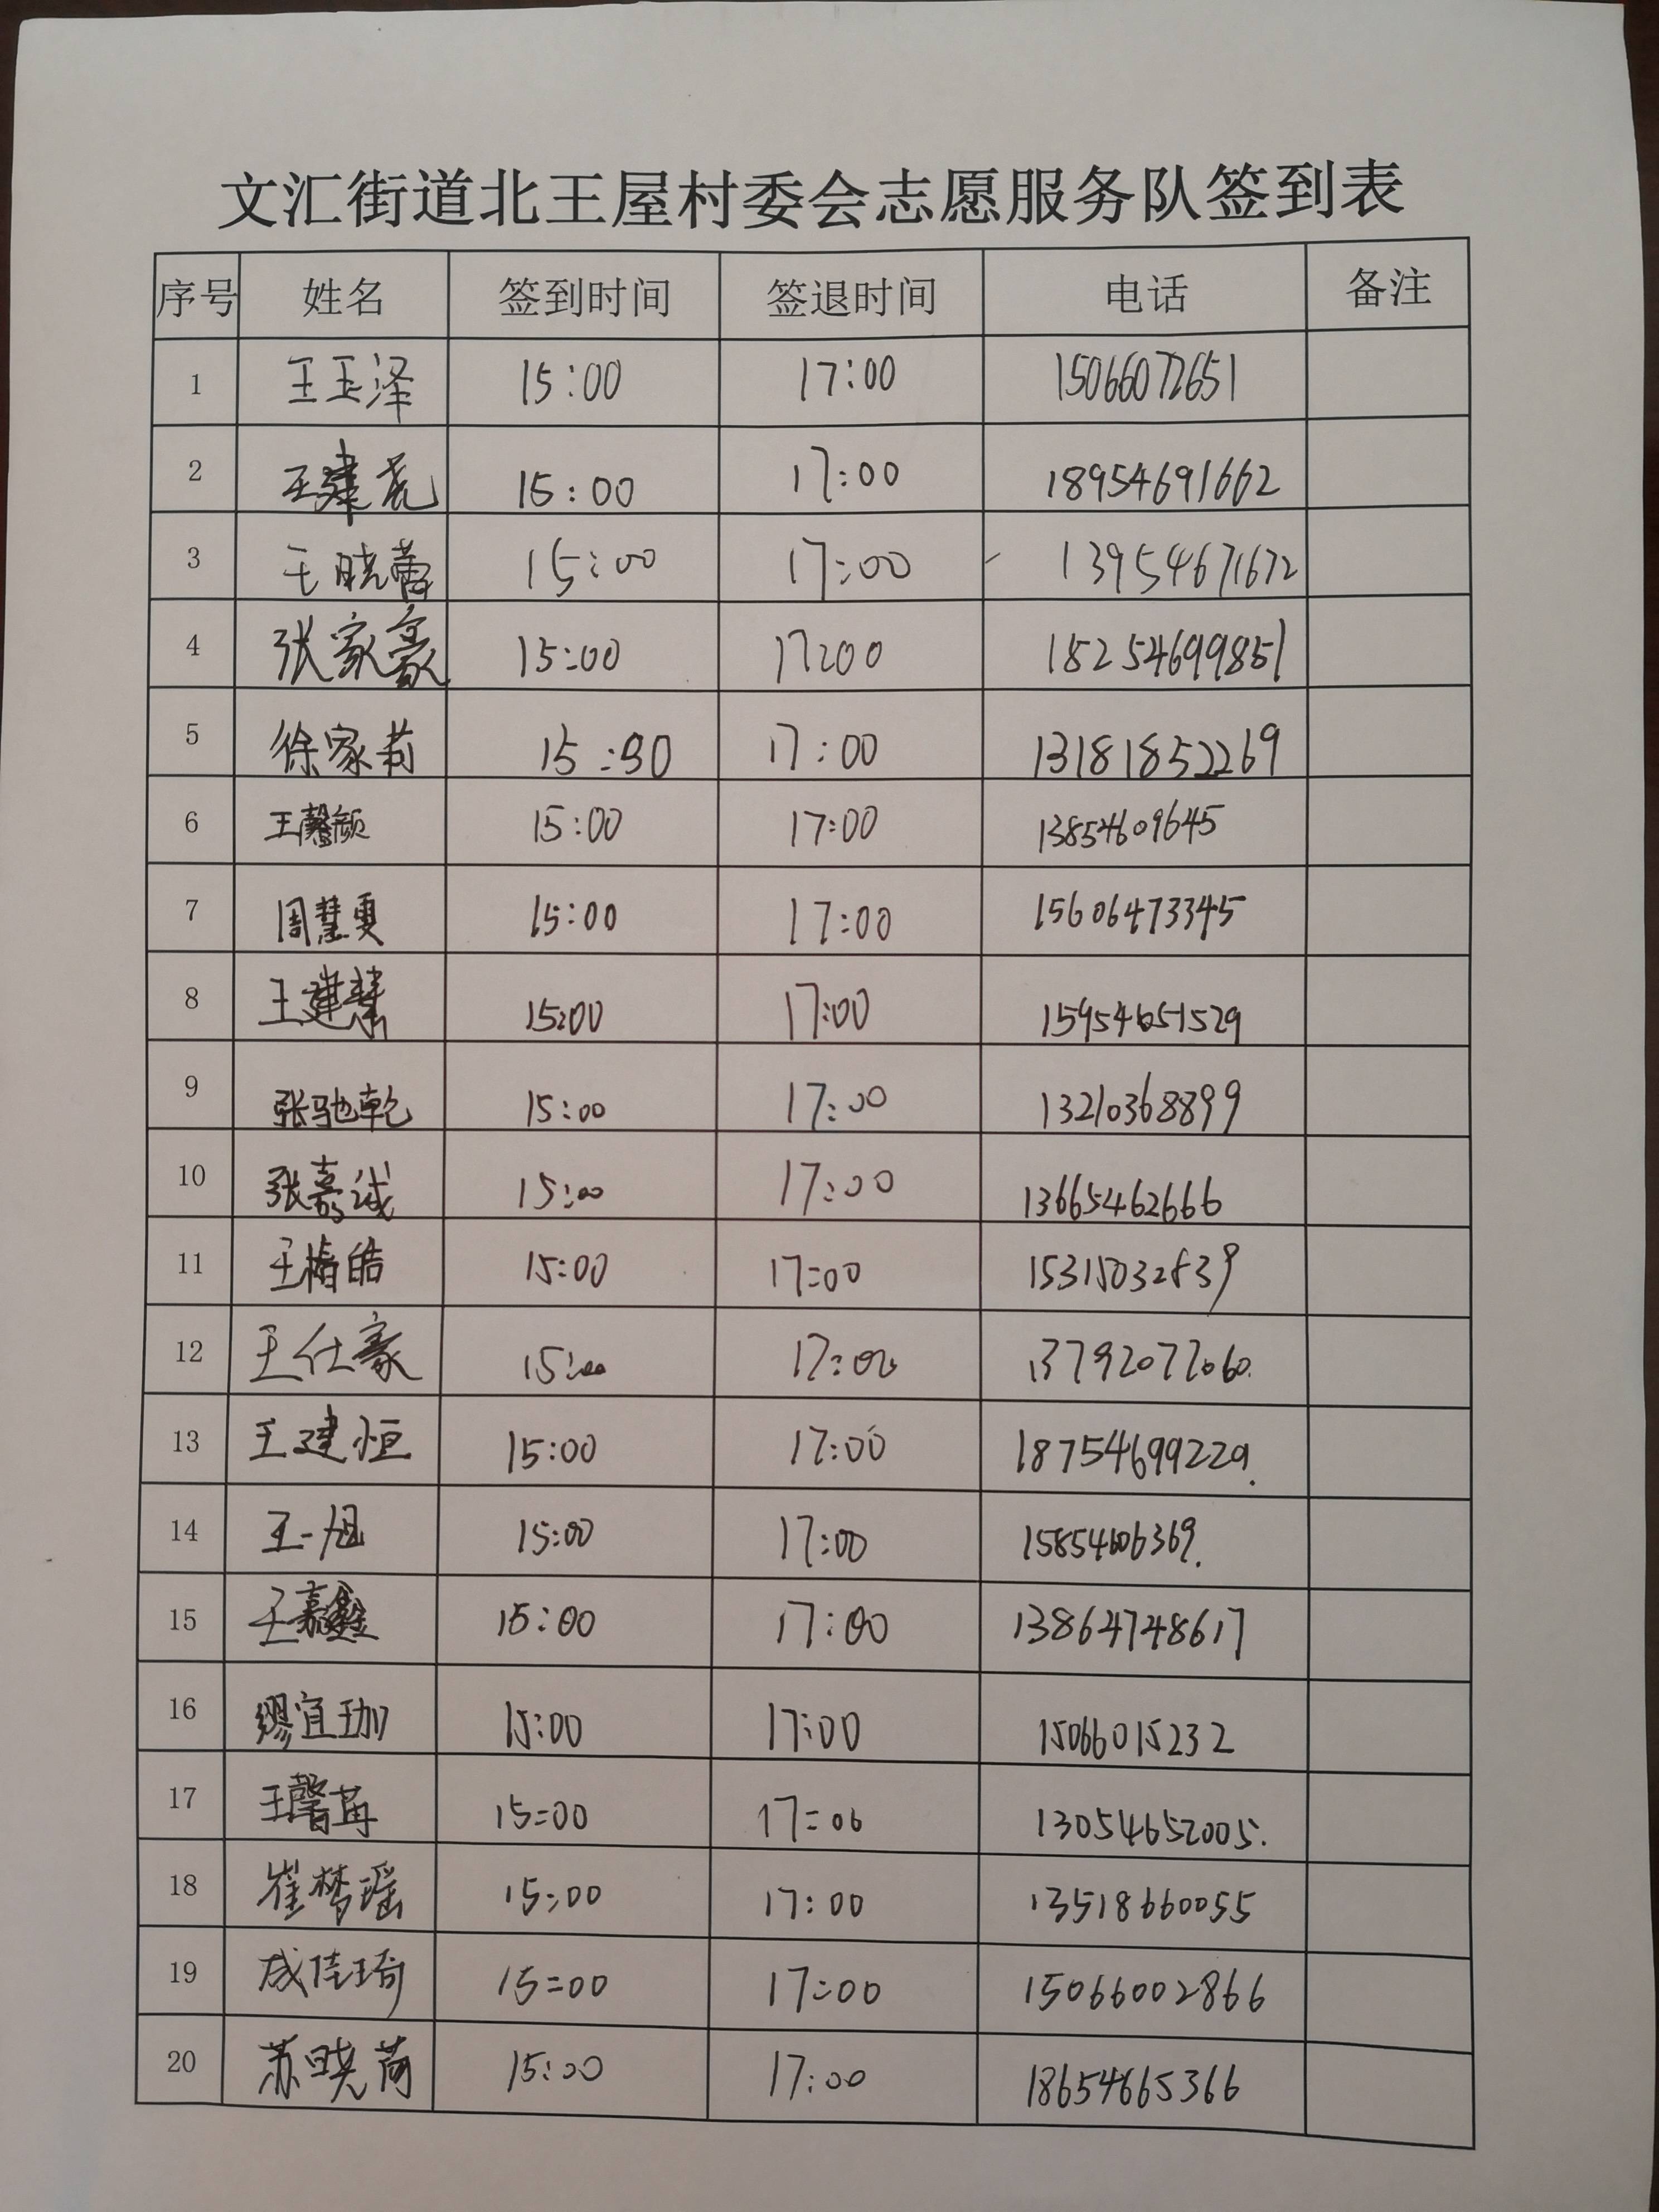 文汇街道北王屋村委会志愿服务队签到表
序号 姓名 签到时间 签退时间 电话 备注
1 王玉泽 15:00 17:00 15066072651
2 王建尧 15:00 17:00 18954691662
3 王晓蕾 15:00 17:00 13954671672
4 张家豪 15:00 17:00 18254699851
5 徐家莉 15:30 17:00 13181852269
6 王馨颉 15:00 17:00 13854609645
7 周慧雯 15:00 17:00 15606473345
8 王建慧 15:00 17:00 15954651529
9 张驰乾 15:00 17:00 13210368899
10 张嘉诚 15:00 17:00 13665462666
11 王楷皓 15:00 17:00 15315032839
12 王仕豪 15:00 17:00 13792077060.
13 王建恒 15:00 17:00 18754699229.
14 王一旭 15:00 17:00 15854606369.
15 王嘉鑫 15:00 17:00 13864748617
16 缪宜珈 15:00 17:00 15066015232
17 王馨苒 15:00 17:00 13054652005.
18 崔梦瑶 15:00 17:00 13518660055
19 成佳琦 15:00 17:00 15066002866
20 苏晓荷 15:00 17:00 18654665366